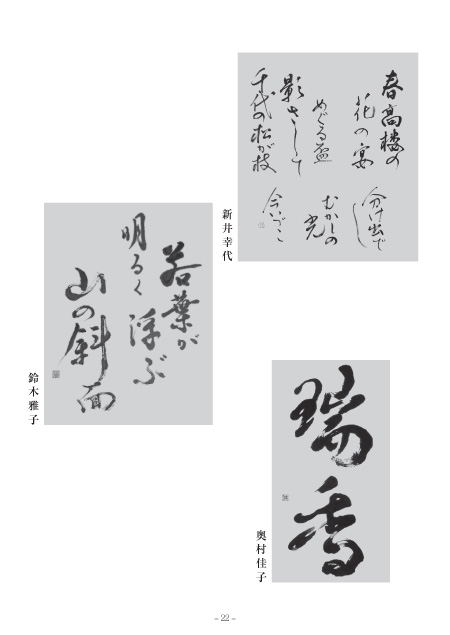 春高楼の
花の宴
めぐる盃
影さして
千代の松が枝
分け出でし
むかしの
光
今いづこ
新井幸代
若葉が
明るく浮ぶ
山の斜面
鈴木雅子
瑞香
奥村佳子
- 22 -